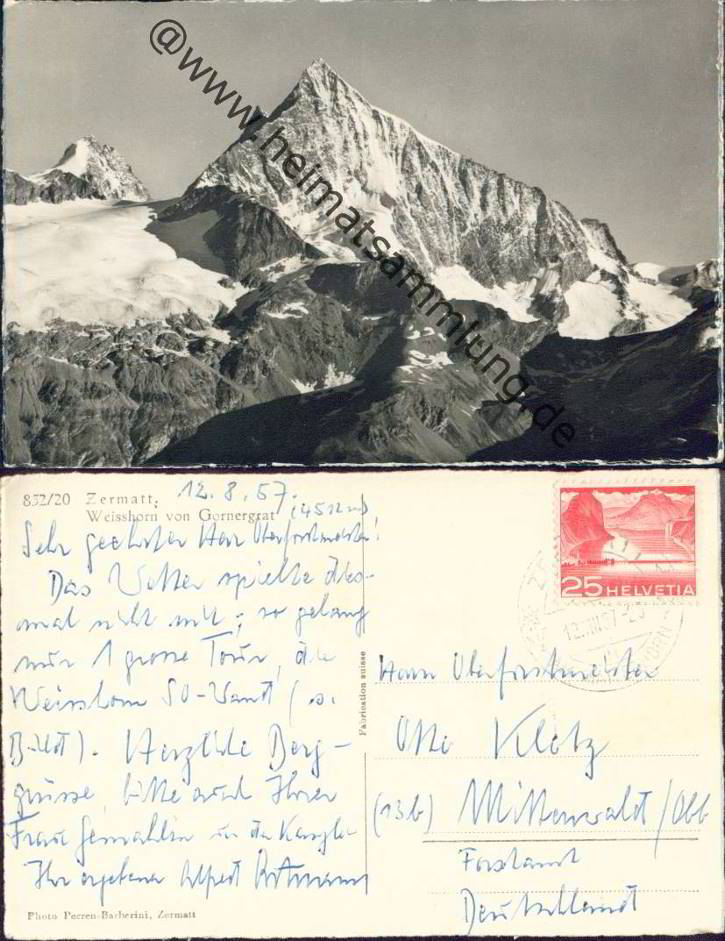 @www.heimatsammlung.de
832/20 Zermatt, 12.8.57.
Weisshorn von Gornergrat (4512m)
Sehr geehrter Herr Oberforstmeister!
Das Wetter spielte dies-
mal nicht mit; so gelang
nur 1 grosse Tour, die
Weisshorn SO-Wand (s.
Bild). Herzliche Berg-
grüsse, bitte auch Ihrer
Frau Gemahlin u. der Kanzlei
Ihr ergebener Alfred
Photo Perren-Barberini, Zermatt
Fabrication suisse
25 HELVETIA
12.VIII.57
Herrn Oberforstmeister
Otto Klotz
(13b) Mittenwald/Obb
Forstamt
Deutschland